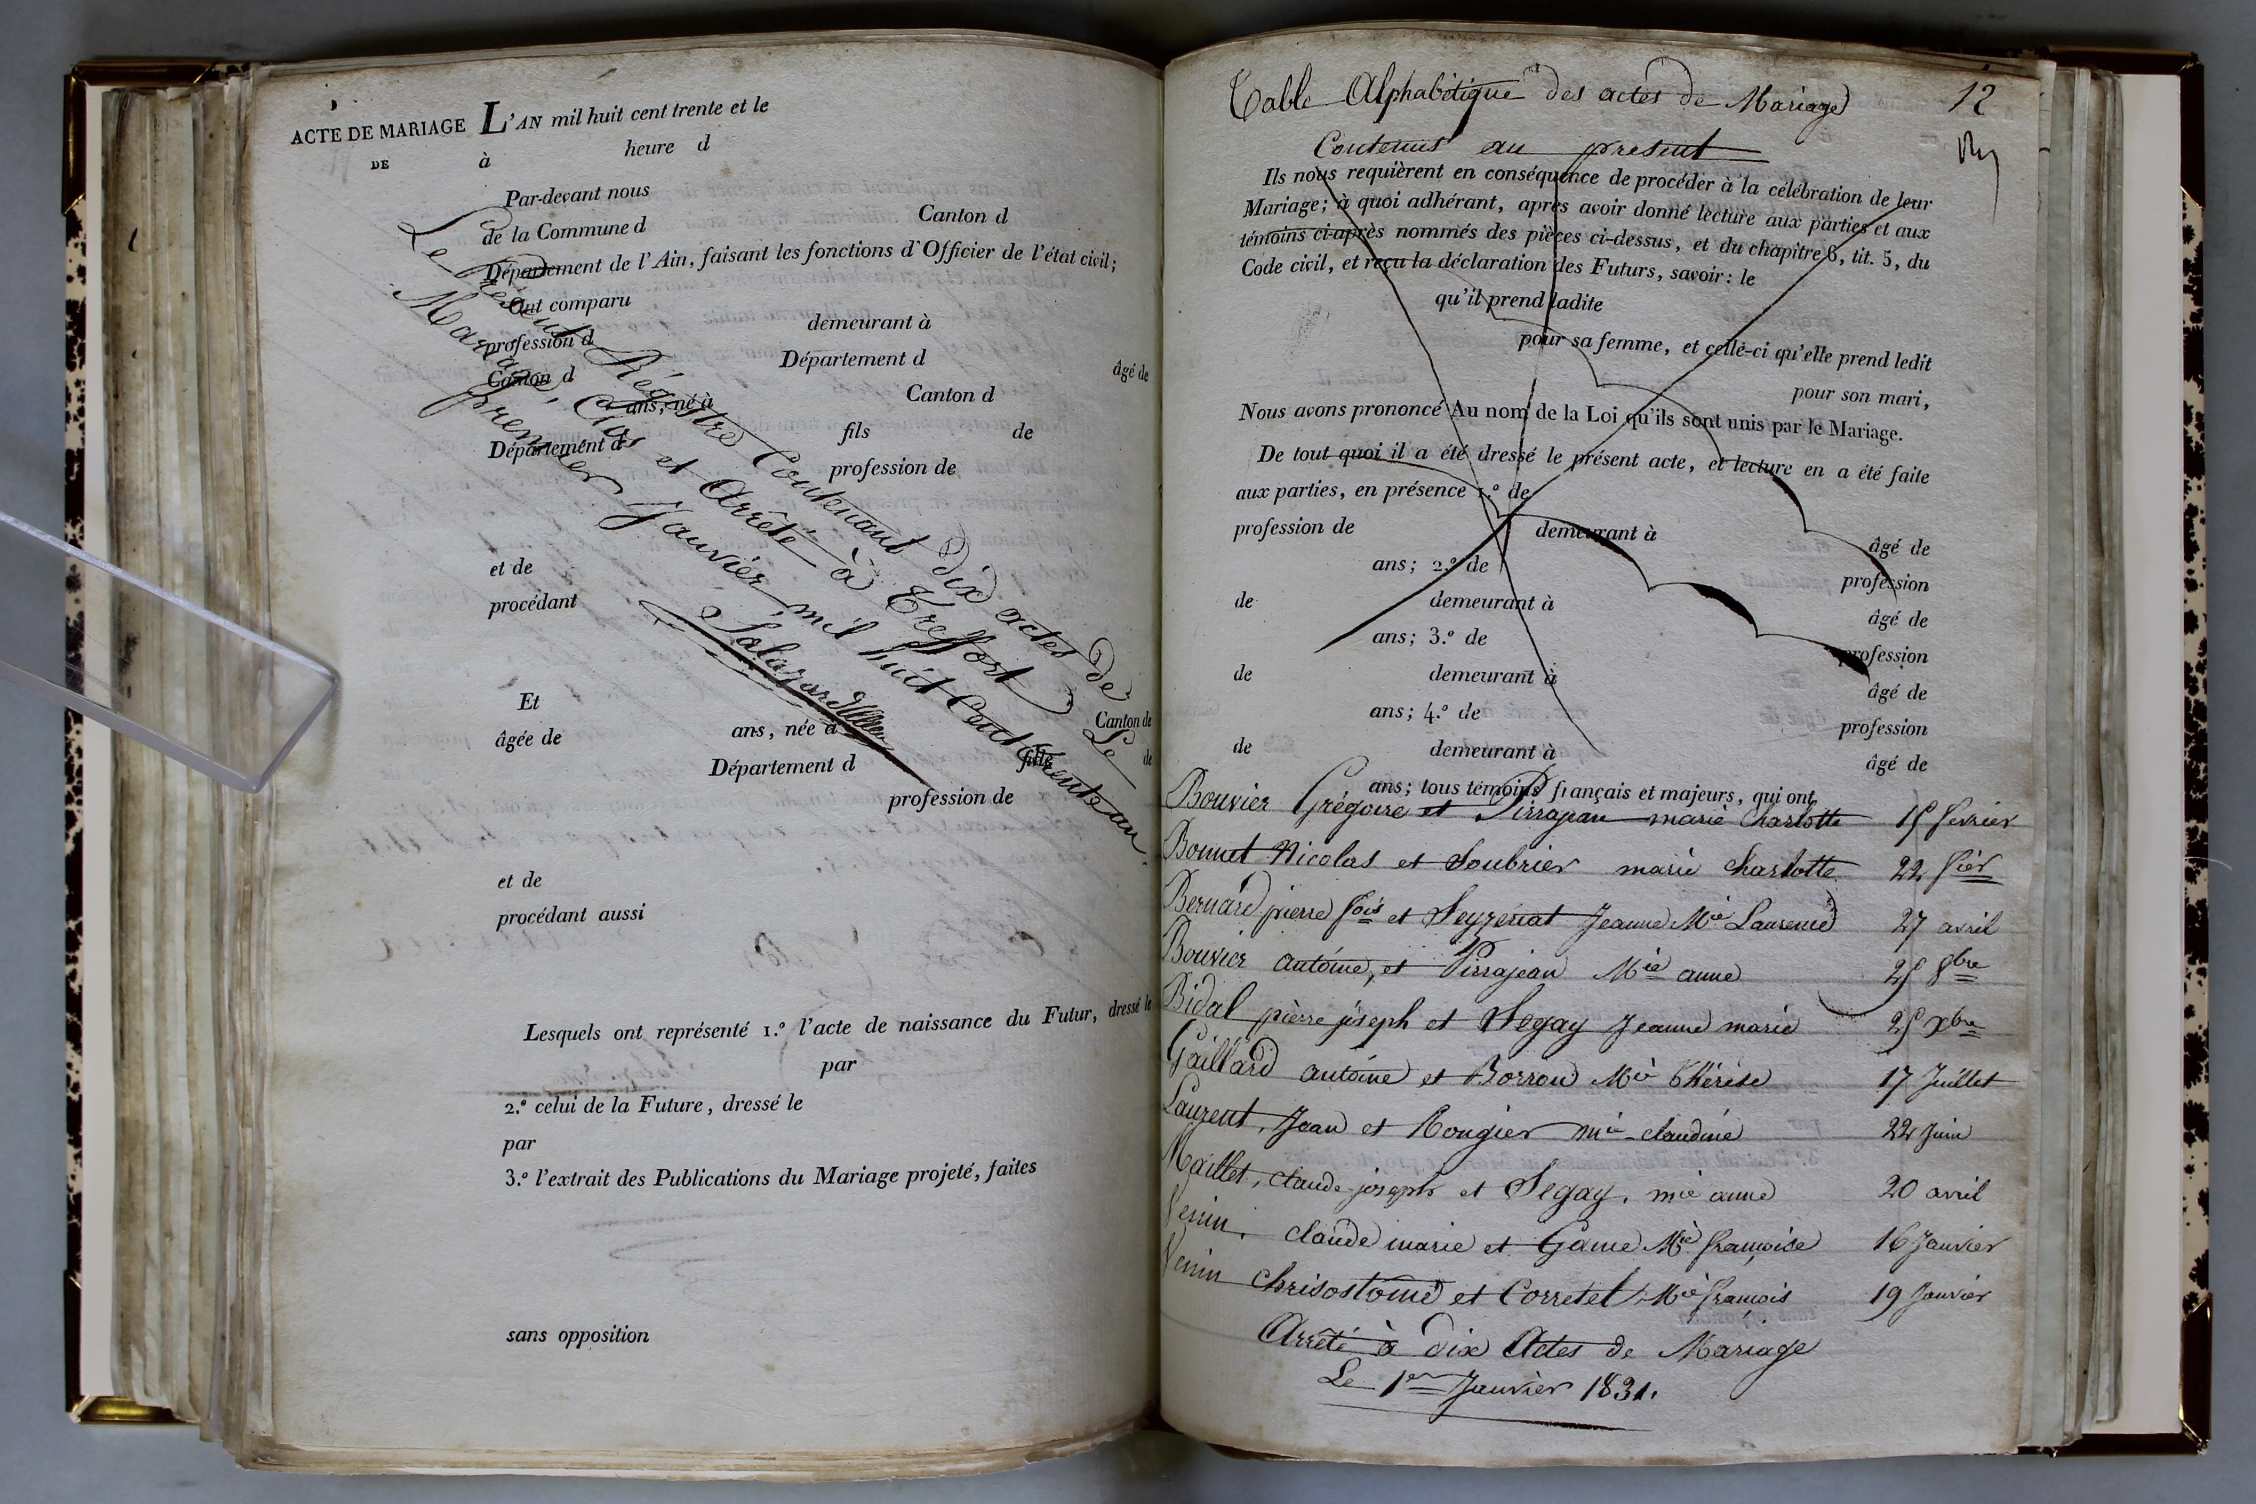 ACTE DE MARIAGE L'AN mil huit cent trente et le
DE à heure d
Par-devant nous
de la Commune d Canton d
Département de l'Ain, faisant les fonctions d'Officier de l'état civil;
Ont comparu
profession d demeurant à
Canton d Département d âgé de
ans, né à Canton d
Département d fils de
profession de
et de
procédant
Et Canton de
âgée de ans, née à de
Département d fille
profession de
et de
procédant aussi
Lesquels ont représenté 1.º l'acte de naissance du Futur, dressé le
par
2.º celui de la Future, dressé le
par
3.º l'extrait des Publications du Mariage projeté, faites
sans opposition
Le Présent Régistre Contenant dix actes de
Mariage, Clos et Arrêté à Treffort Le
premier Janvier mil huit Cent trente un.
Salazard
Table Alphabétique des actes de Mariage 12
Contenus au present
Ils nous requièrent en conséquence de procéder à la célébration de leur
Mariage; à quoi adhérant, après avoir donné lecture aux parties et aux
témoins ci-après nommés des pièces ci-dessus, et du chapitre 6, tit. 5, du
Code civil, et reçu la déclaration des Futurs, savoir: le
qu'il prend ladite
pour sa femme, et celle-ci qu'elle prend ledit
pour son mari,
Nous avons prononcé Au nom de la Loi qu'ils sont unis par le Mariage.
De tout quoi il a été dressé le présent acte, et lecture en a été faite
aux parties, en présence 1.º de
profession de demeurant à âgé de
ans; 2.º de profession
de demeurant à âgé de
ans; 3.º de profession
de demeurant à âgé de
ans; 4.º de profession
de demeurant à âgé de
ans; tous témoins français et majeurs, qui ont
Bouvier Grégoire et Pirrajean marie Charlotte 15 fevrier
Bonnet Nicolas et Soubrier marie Charlotte 22 fier
Bernard pierre fois et Seyzériat Jeanne Mie Laurence 27 avril
Bouvier antoine, et Pirrajean Mie anne 25 8bre
Bidal pierre joseph et Segay Jeanne marie 25 Xbre
Gaillard antoine et Borron Mie Thérèse 17 Juillet
Laurent, Jean et Rougier mie claudine 22 Juin
Maillet, claude joseph et Segay, mie anne 20 avril
Venin, claude marie et Game Mie françoise 16 Janvier
Venin Chrisostome et Corretel Mie françois 19 Janvier
Arrêté à dix Actes de Mariage
Le 1er Janvier 1831.